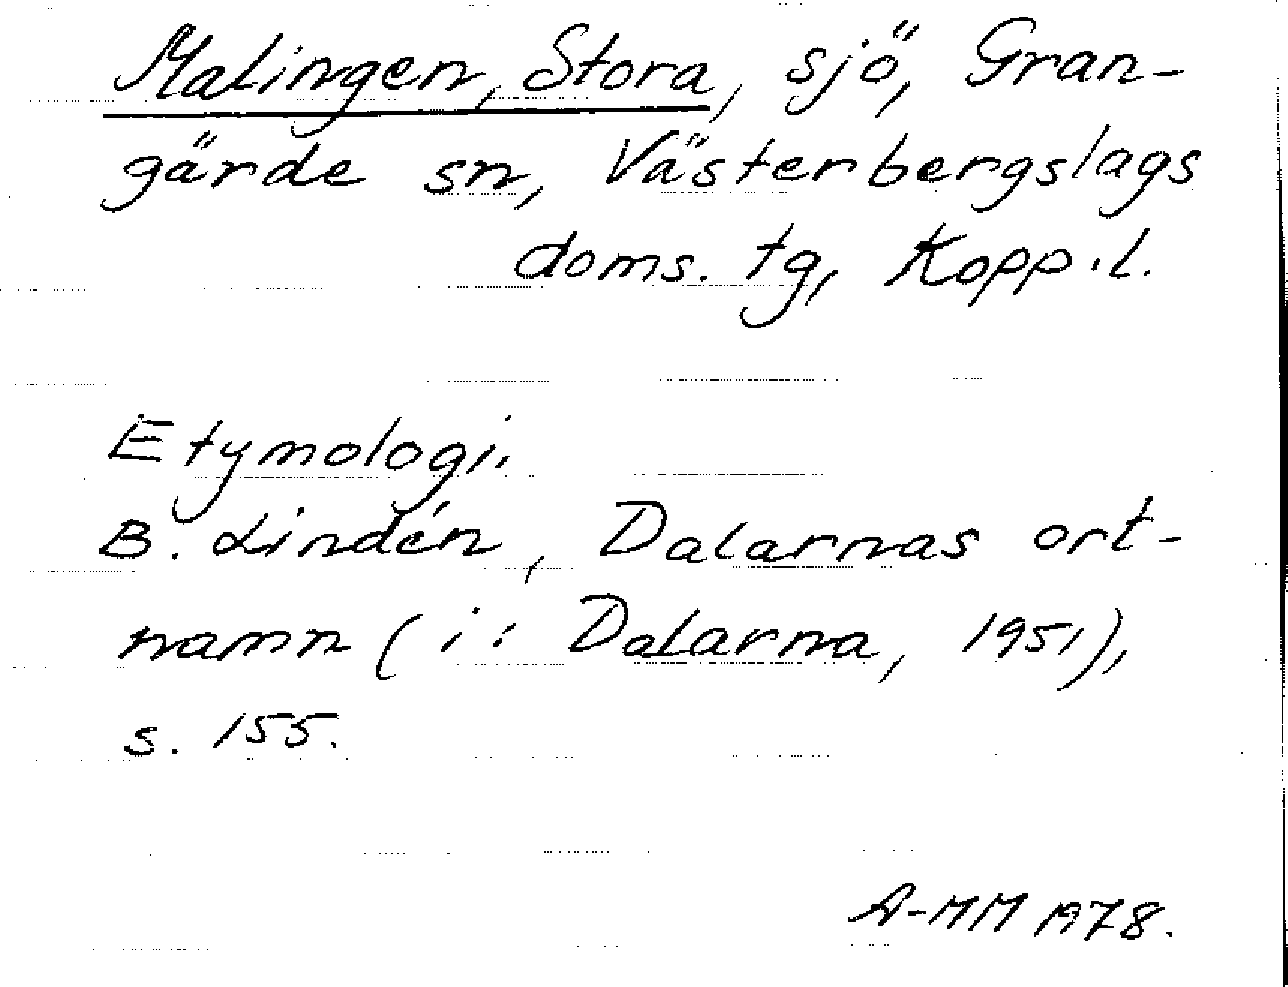 Malingen, Stora, sjö, Gran-
gärde sn, Västerbergslags
doms. tg, Kopp.l.
Etymologi.
B. Lindén, Dalarnas ort-
namn (i: Dalarna, 1951),
s. 155.
A-MM 1978.